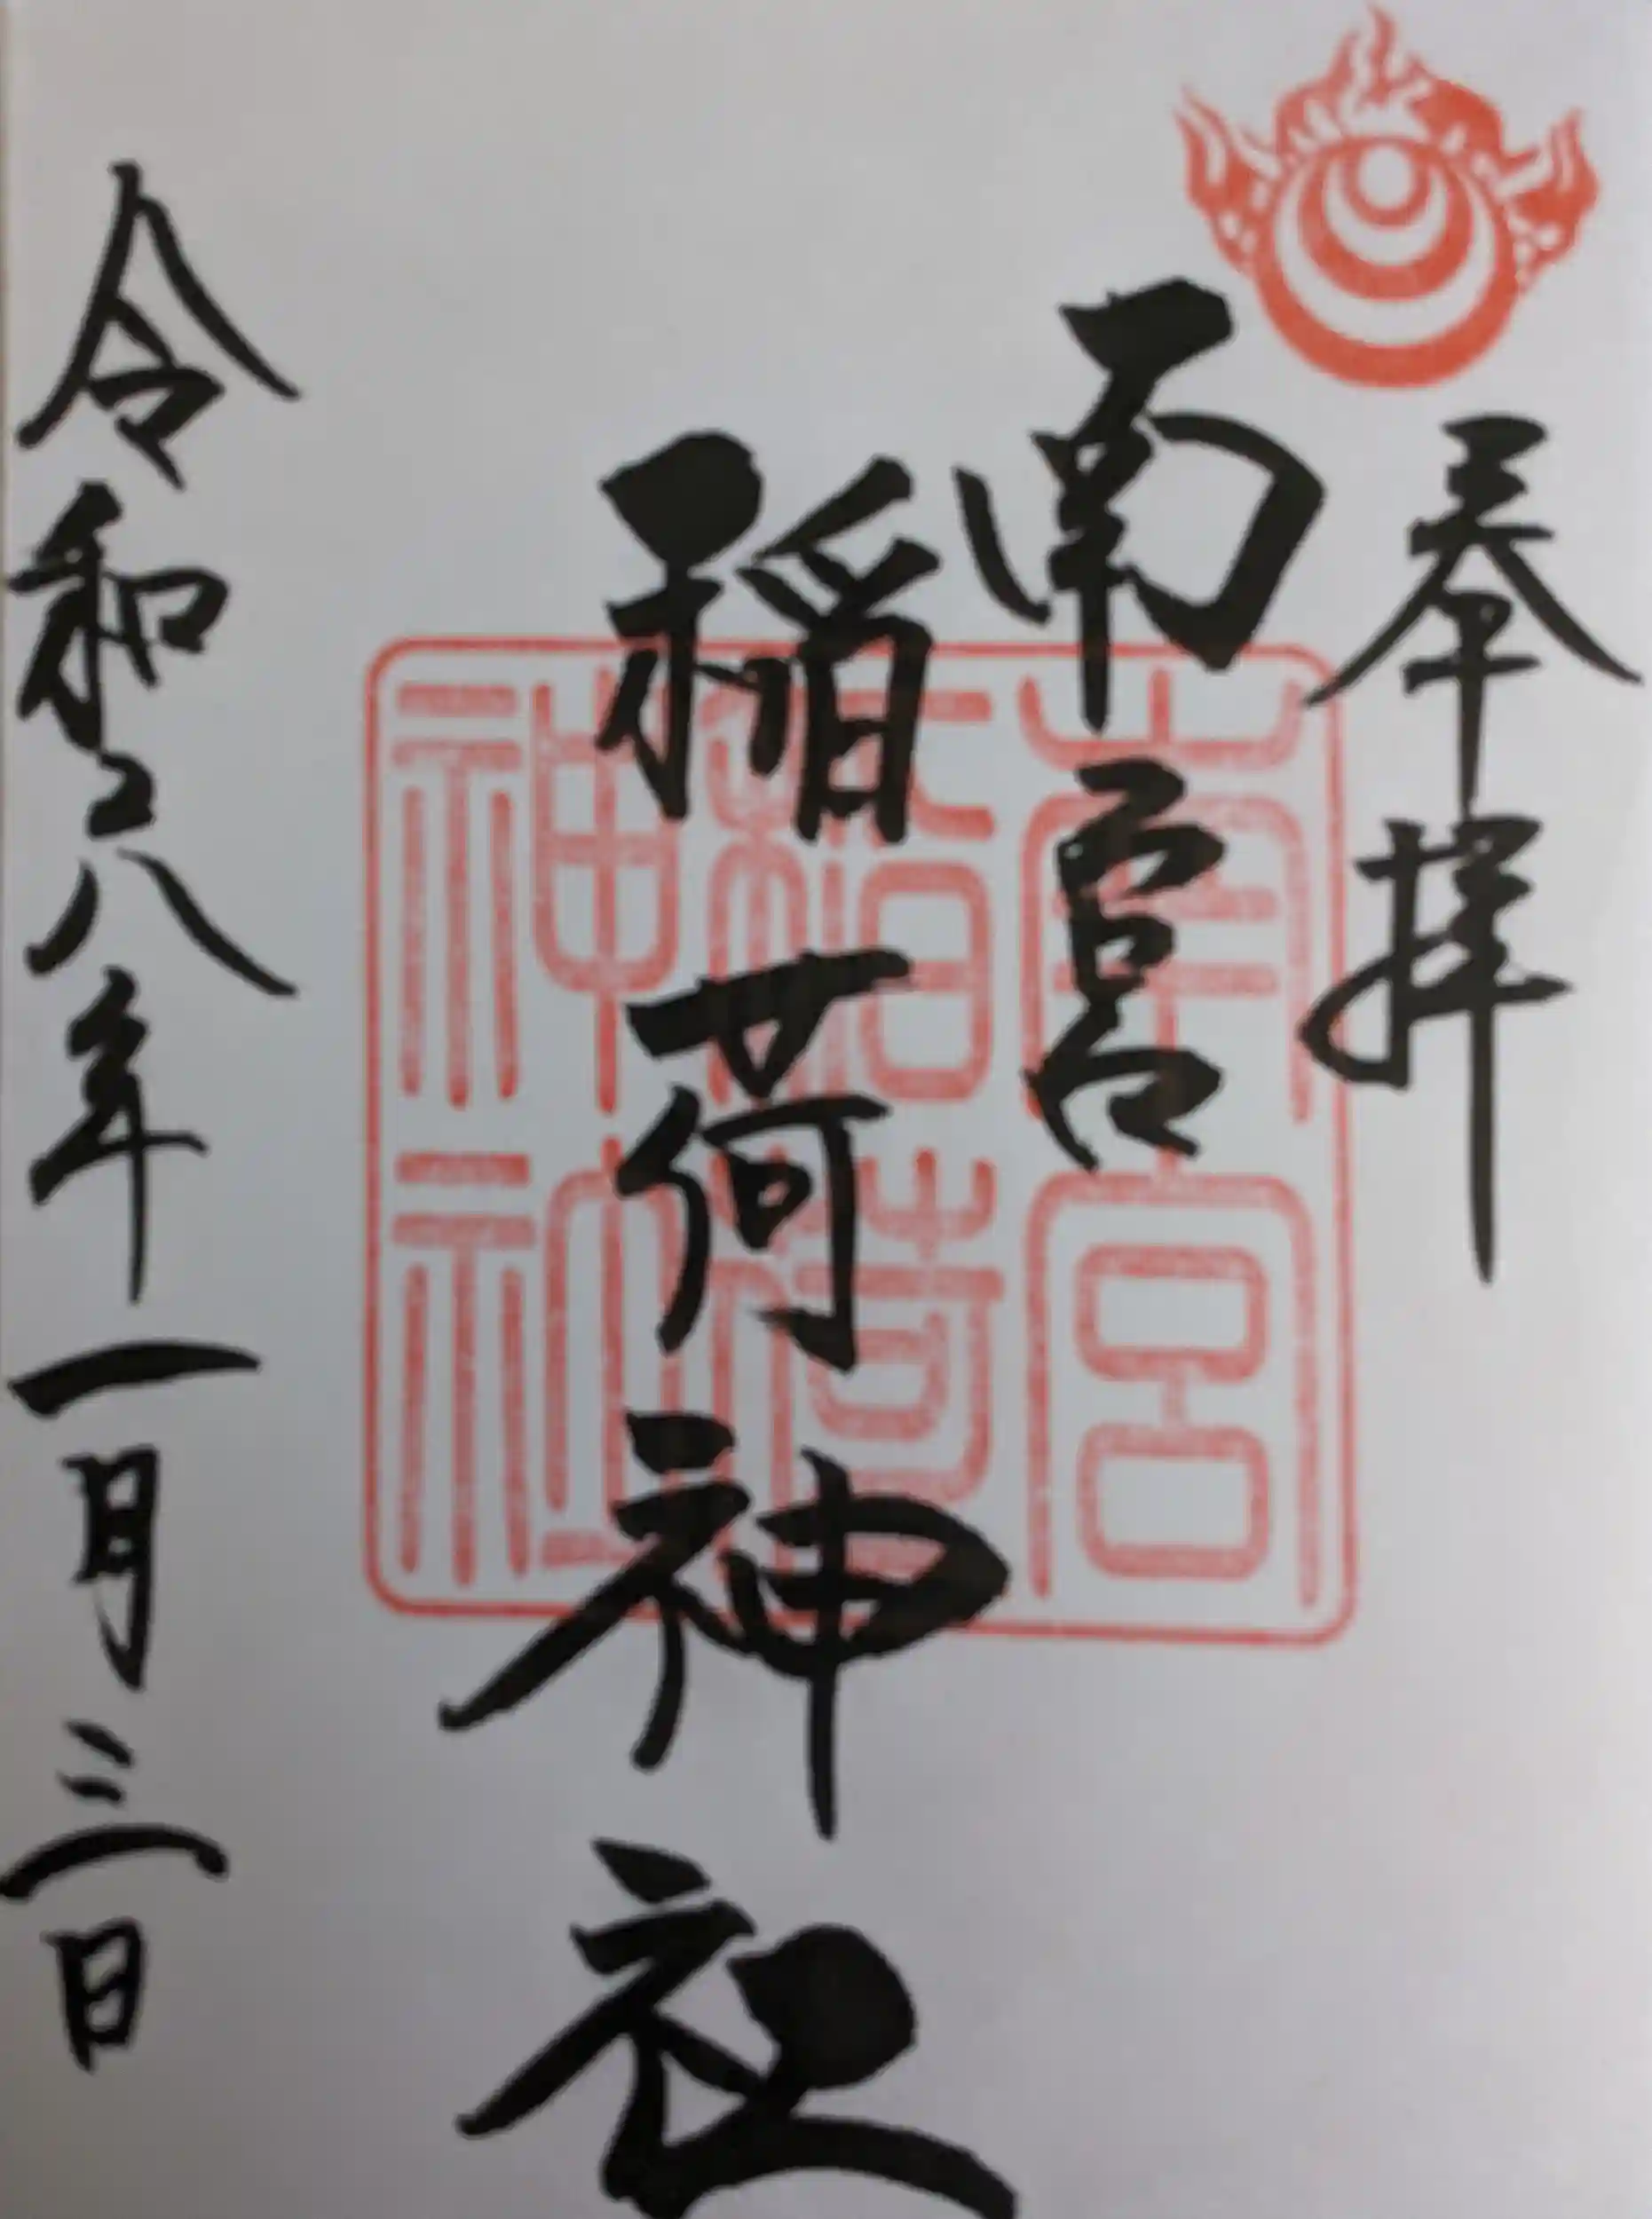 奉拝
南宮
稲荷神社
令和六年一月三日
南宮
稲荷
神社